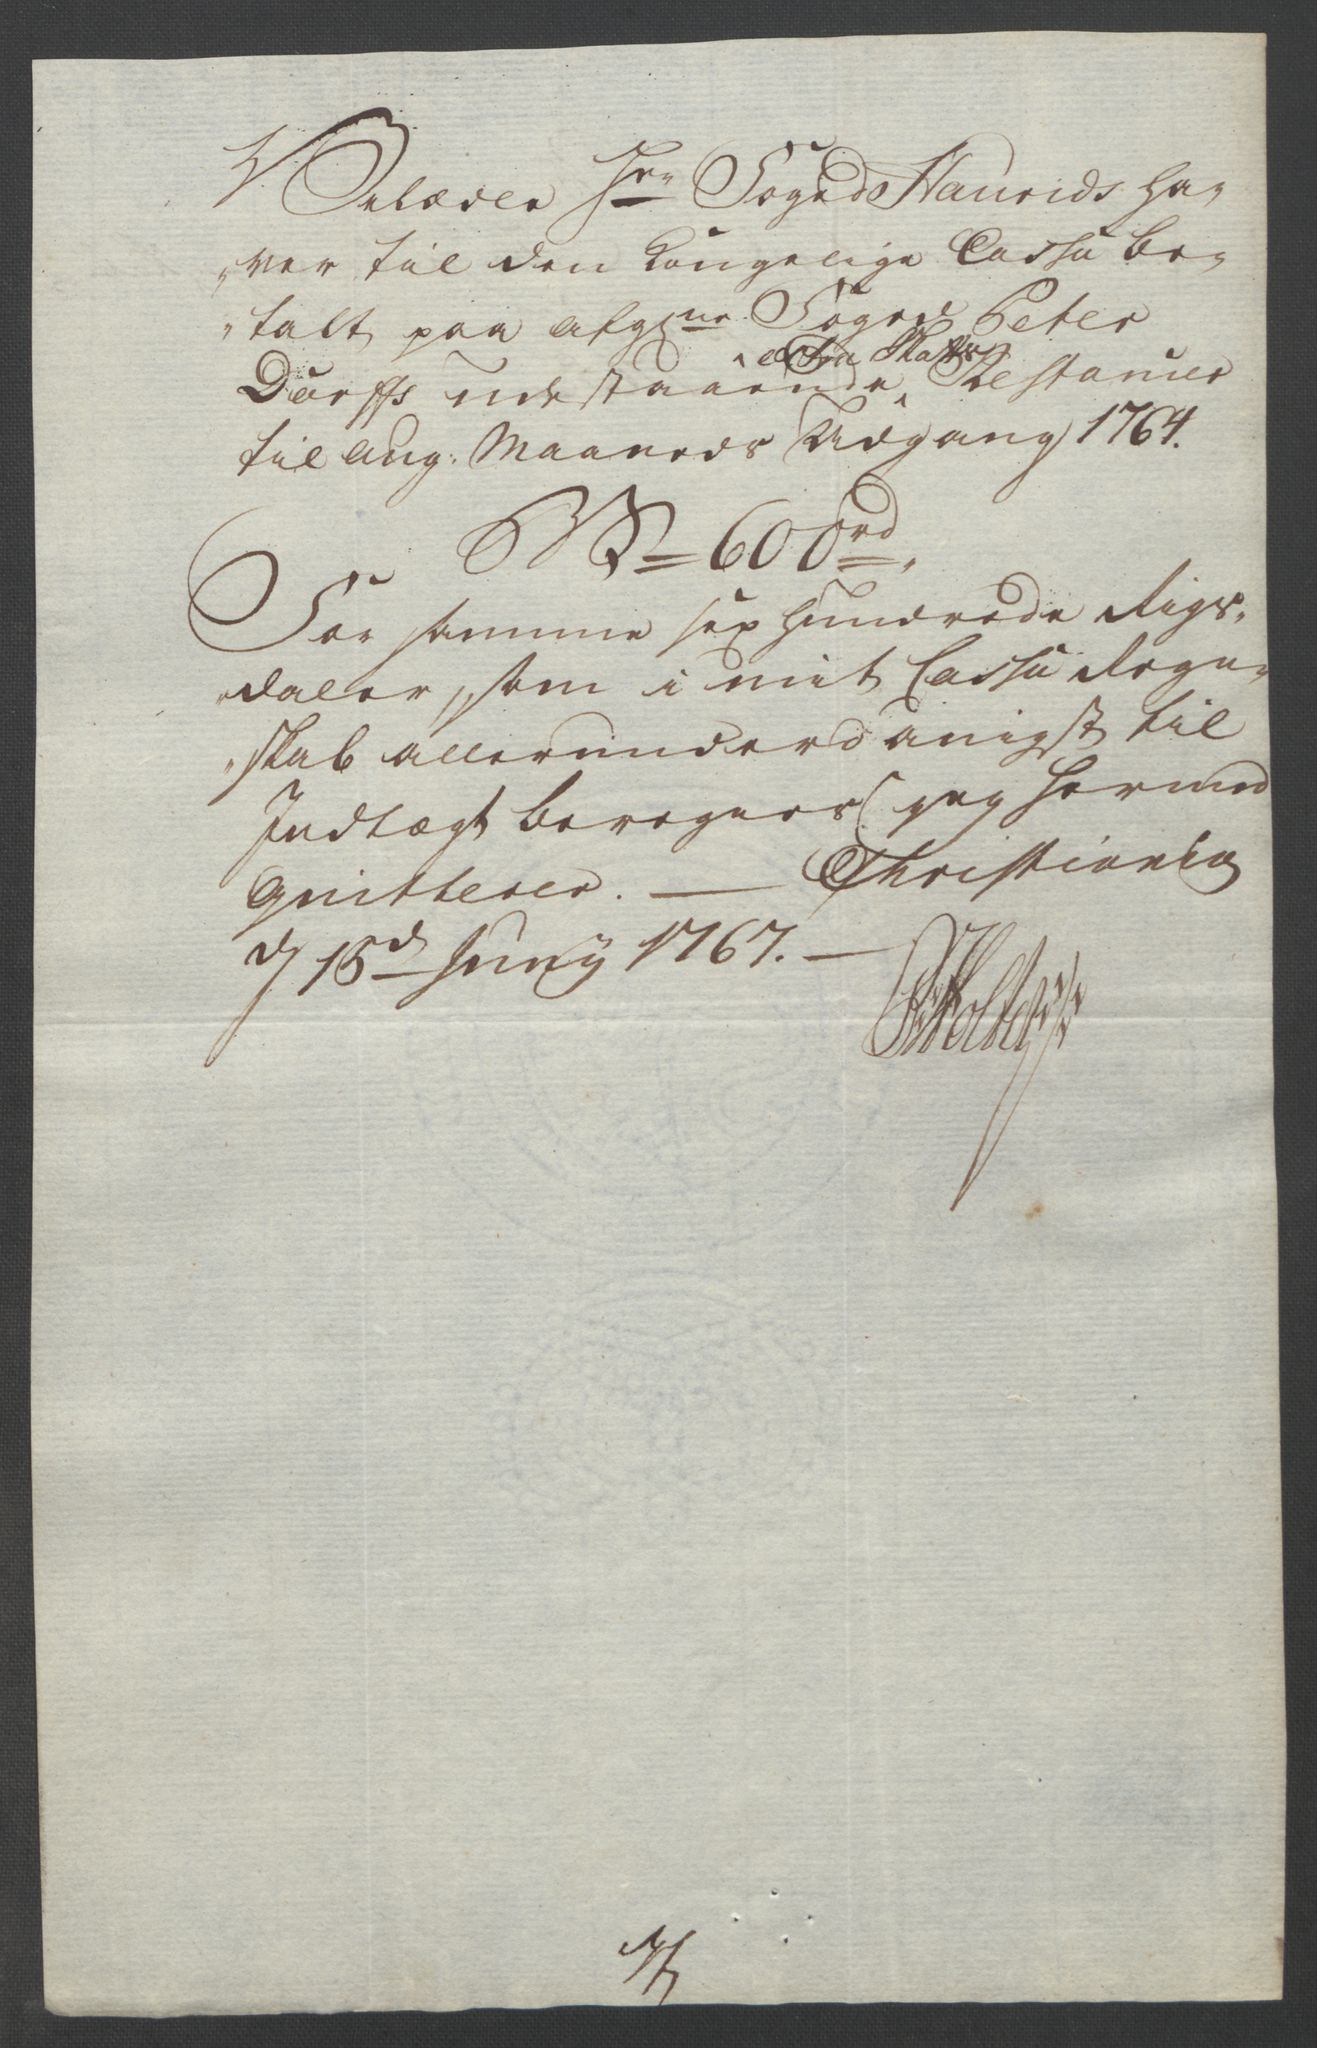 Velædle Hrn Foged Staurids ha-
-ver til den Kongelige Cassa be-
-talt paa afgⁿᵉ Foged Peter
Dorffs udestaaende Extra Skatts Restancer
til Aug: Maaneds Udgang 1764.
600 rd
For samme sex hundrede Rigs-
-daler, som i mit Cassa Regn-
-skab allerunderdanigst til
Indtægt beregnes, jeg hermed
qvitterer. — Christiania
d 15d Juny 1767. —
Holter